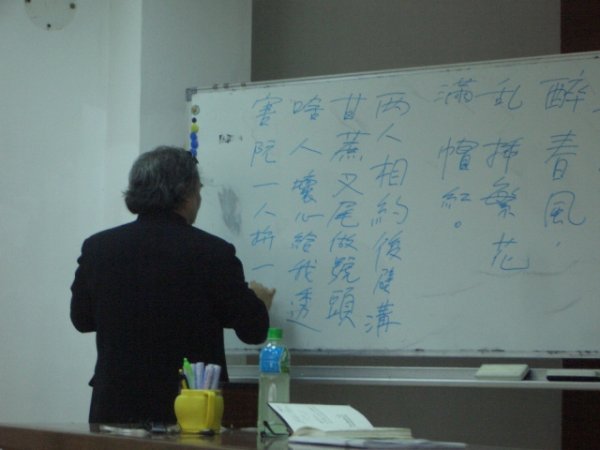 醉春風.
乱揷繁花
滿帽紅。
两人相約後壁溝
甘蔗叉尾做號頭
啥人壞心給我透
害阮一人拚一